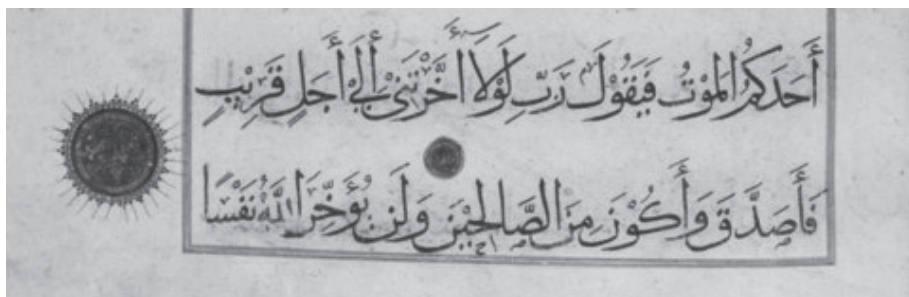 أَحَدَكُمُ الْمَوْتُ فَيَقُوْلَ رَبِّ لَوْلَآ أَخَّرْتَنِيْ إِلَىْ أَجَلٍ قَرِيْبٍ
فَأَصَّدَّقَ وَأَكُوْنَ مِنَ الصَّالِحِيْنَ وَلَنْ يُؤَخِّرَ اللَّهُ نَفْسًا